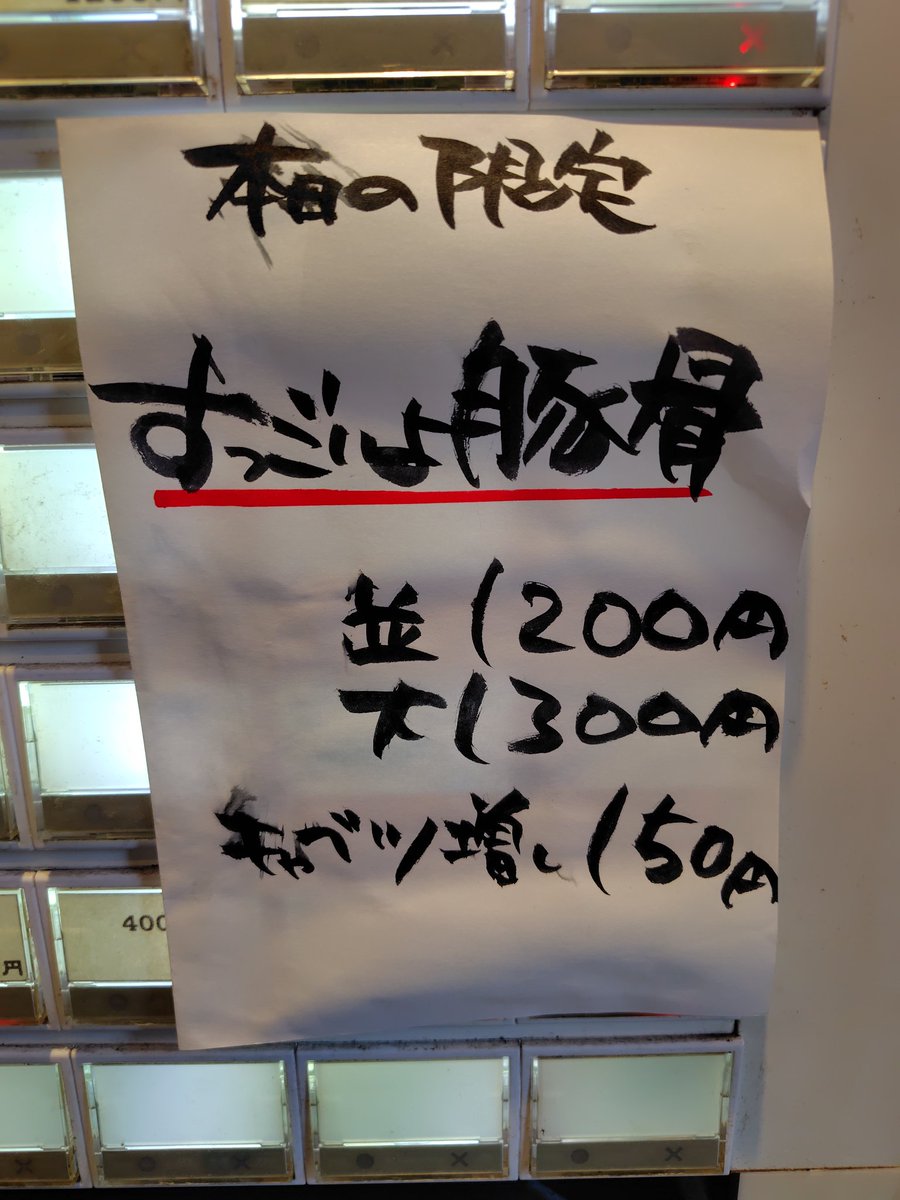 本日の限定
すっごいしょ豚骨
並 1200円
大 1300円
キャベツ増し 150円
400
円